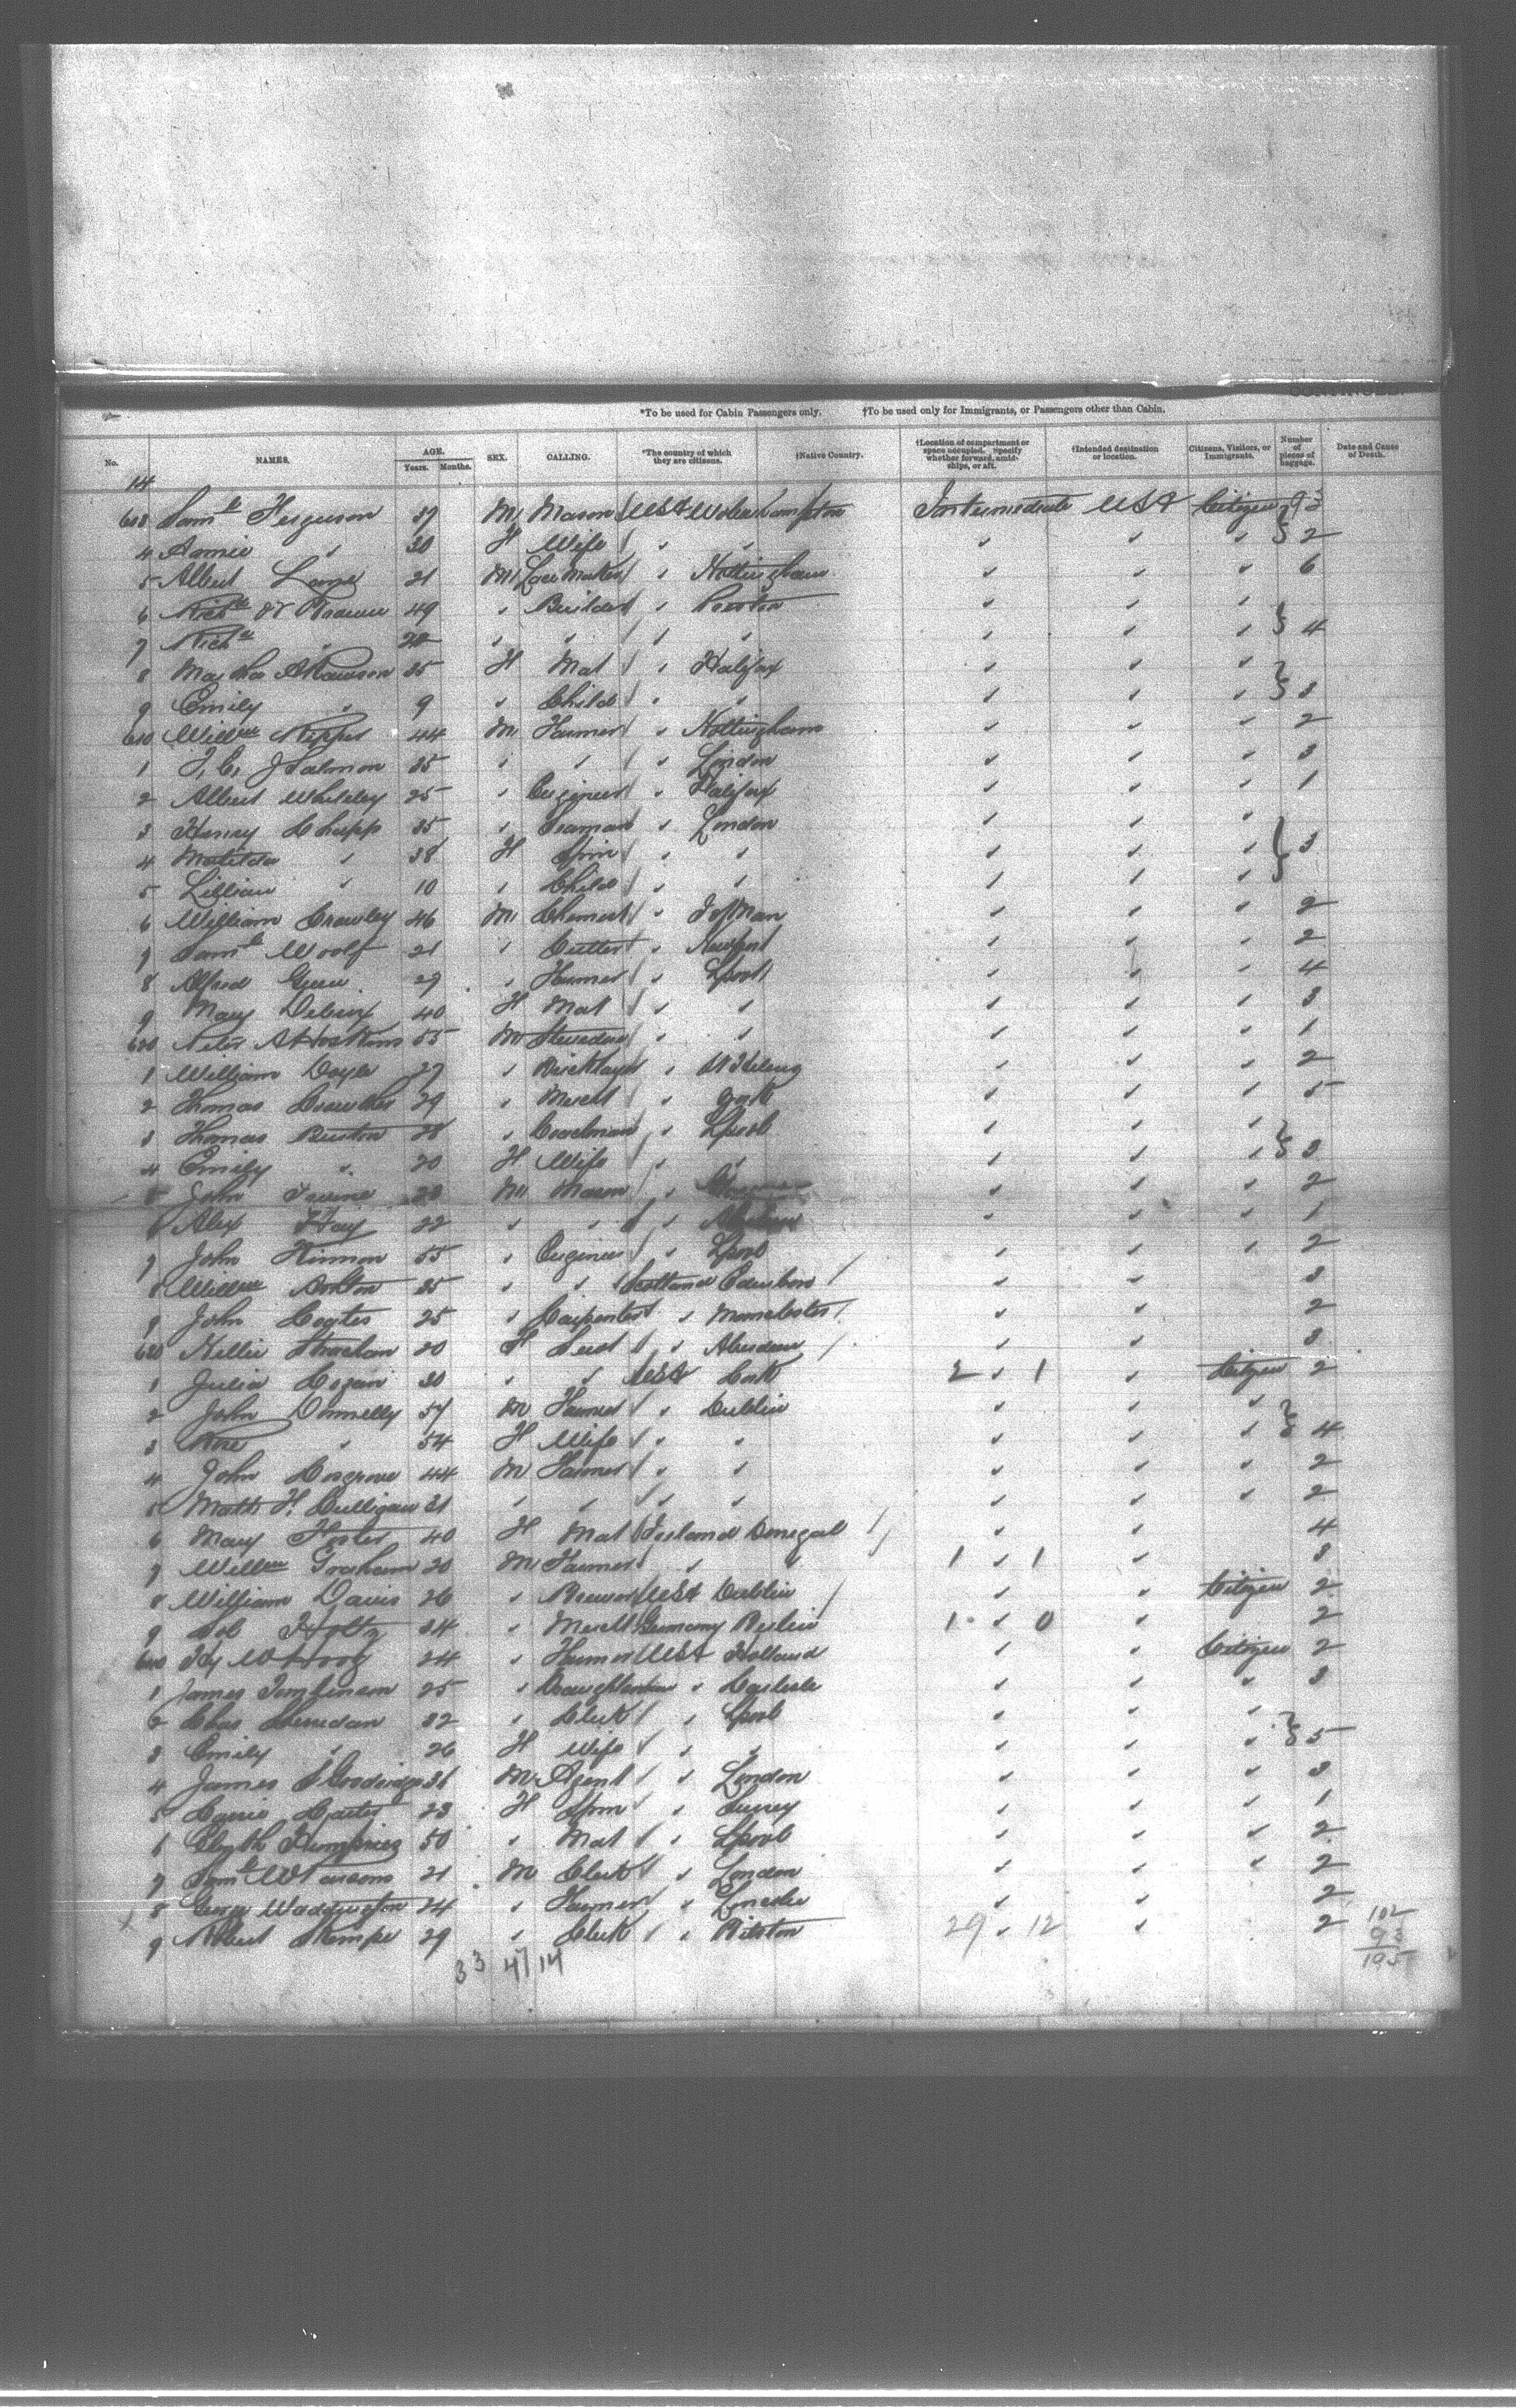 CONTINUED.
*To be used for Cabin Passengers only. †To be used only for Immigrants, or Passengers other than Cabin.
No. NAMES. AGE. Years. Months. SEX. CALLING. *The country of which they are citizens. †Native Country. †Location of compartment or space occupied. Specify whether forward, amidships, or aft. †Intended destination or location. Citizens, Visitors, or Immigrants. Number of pieces of baggage. Date and Cause of Death.
14
Saml Ferguson 37 M Mason USA Wolverhampton Intermediate USA Citizen 93
4 Annie " 30 F Wife " " " " " 2
5 Albert 21 M Lace Maker " Nottingham " " " 6
6 Richd 49 " Builder " Preston " " "
7 Richd " " " " " " " " 4
8 Martha A Rawson 35 F Mat " Halifax " " "
9 Emily " 9 " Child " " " " " 3
610 Willm 44 M Farmer " Nottingham " " " 2
1 F. C. J Salmon 35 " " " London " " " 3
2 Albert Whiteley 25 " Engineer " Halifax " " " 1
3 Henry Chapp 35 " Seaman " London " " "
4 Matilda " 38 F Spin " " " " " 3
5 Lillian " 10 " Child " " " " "
6 William Crowley 46 M Chemist " I of Man " " " 2
7 Saml Woolf 21 " Cutter " Newport " " " 2
8 Alfred Green 27 " Farmer " Lpool " " " 4
9 Mary 40 F Mat " " " " " 3
620 Peter A Hoskins 55 M Stevedore " " " " " 1
1 William Doyle 27 " Bricklayer " St Helens " " " 2
2 Thomas Crowther 29 " Mercht " York " " " 5
3 Thomas Burton 28 " " Lpool " " "
4 Emily " 20 F Wife " " " " " 3
5 John Irvine 28 M Mason " " " " 2
6 Alex Hay 22 " " " Aberdeen " " " 1
7 John Kinnon 55 " Engineer " Lpool " " " 2
8 Willm Ashton 35 " " Scotland Edinboro " " 3
9 John Coates 25 " Carpenter " Manchester " " 2
630 Nellie Strachan 20 F Servt " Aberdeen " " 3
1 Julia Hogan 30 " " USA Cork 2 " 1 " Citizen 2
2 John Donnelly 57 M Farmer " Dublin " " "
3 Rose " 54 F Wife " " " " " 4
4 John Cosgrove 44 M Farmer " " " " " 2
5 Matth H. Culligan 31 " " " " " " " 2
6 Mary Foster 40 F Mat Ireland Donegal " " 4
7 Willm Graham 20 M Farmer " " 1 " 1 " 3
8 William Davis 26 " Brewer USA Dublin " " Citizen 2
9 Sol Holtz 34 " Mercht Germany Berlin 1 " 0 " 2
640 Hy 24 " Farmer USA Holland " " Citizen 2
1 James Tomlinson 25 " Draughtsman " Carlisle " " " 3
2 Chas Sheridan 32 " Clerk " Lpool " " "
3 Emily " 26 F Wife " " " " " 5
4 James S Goodridge 31 M Agent " London " " " 3
5 Carrie Carter 23 F Spin " Surrey " " " 1
6 Elizth Humphries 50 " Mat " Lpool " " " 2
7 Saml W Parsons 21 M Clerk " London " " " 2
8 George Waddington 24 " Farmer " Lincoln " " 2
9 Robert Kempe 29 " Clerk " Bilston 29 " 12 " 2
102
93
195
33 47 14